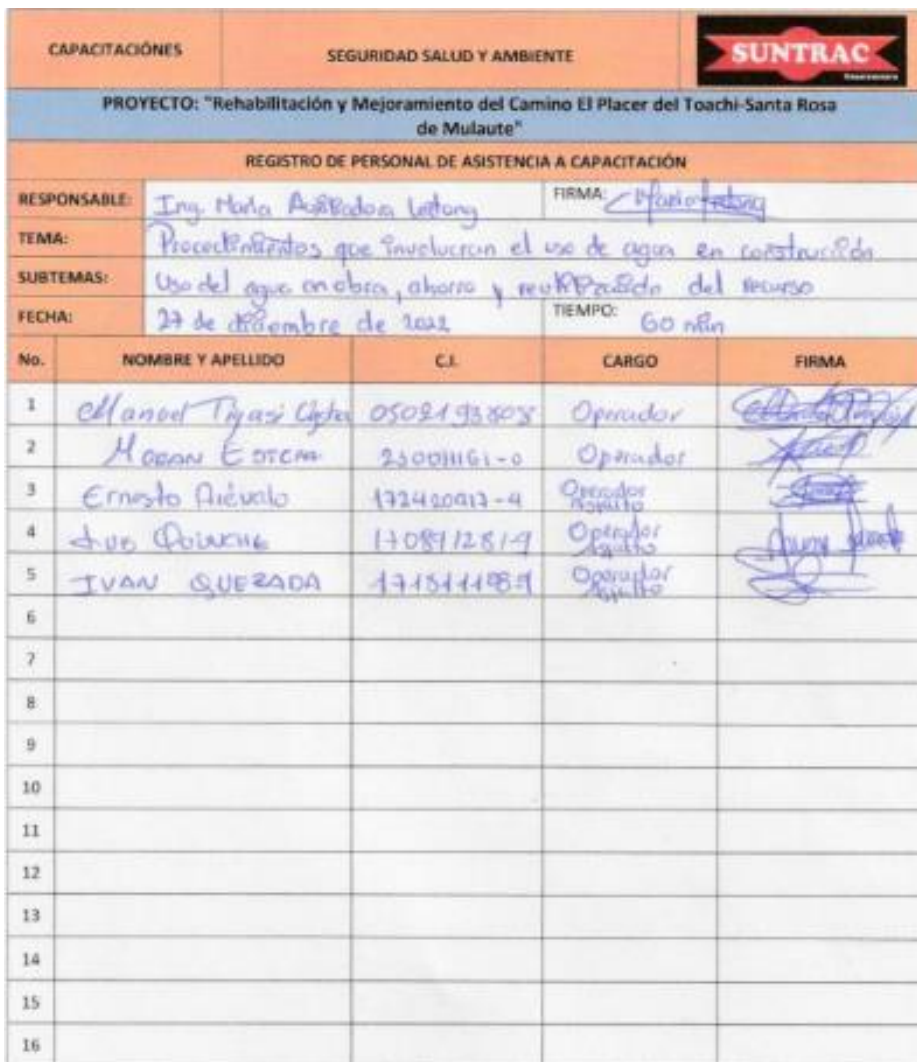 CAPACITACIÓNES
SEGURIDAD SALUD Y AMBIENTE
SUNTRAC
PROYECTO: "Rehabilitación y Mejoramiento del Camino El Placer del Toachi-Santa Rosa
de Mulaute"
REGISTRO DE PERSONAL DE ASISTENCIA A CAPACITACIÓN
RESPONSABLE: Ing. María FIRMA:
TEMA: Procedimientos que involucran el uso de agua en construcción
SUBTEMAS: Uso del agua en obra, ahorro y reutilización del recurso
FECHA: 27 de diciembre de 2022 TIEMPO: 60 min
No. NOMBRE Y APELLIDO C.I. CARGO FIRMA
1 Manuel Operador
2 Operador
3 Ernesto Arévalo Operador Asfalto
4 Operador Asfalto
5 IVAN QUEZADA Operador Asfalto
6
7
8
9
10
11
12
13
14
15
16